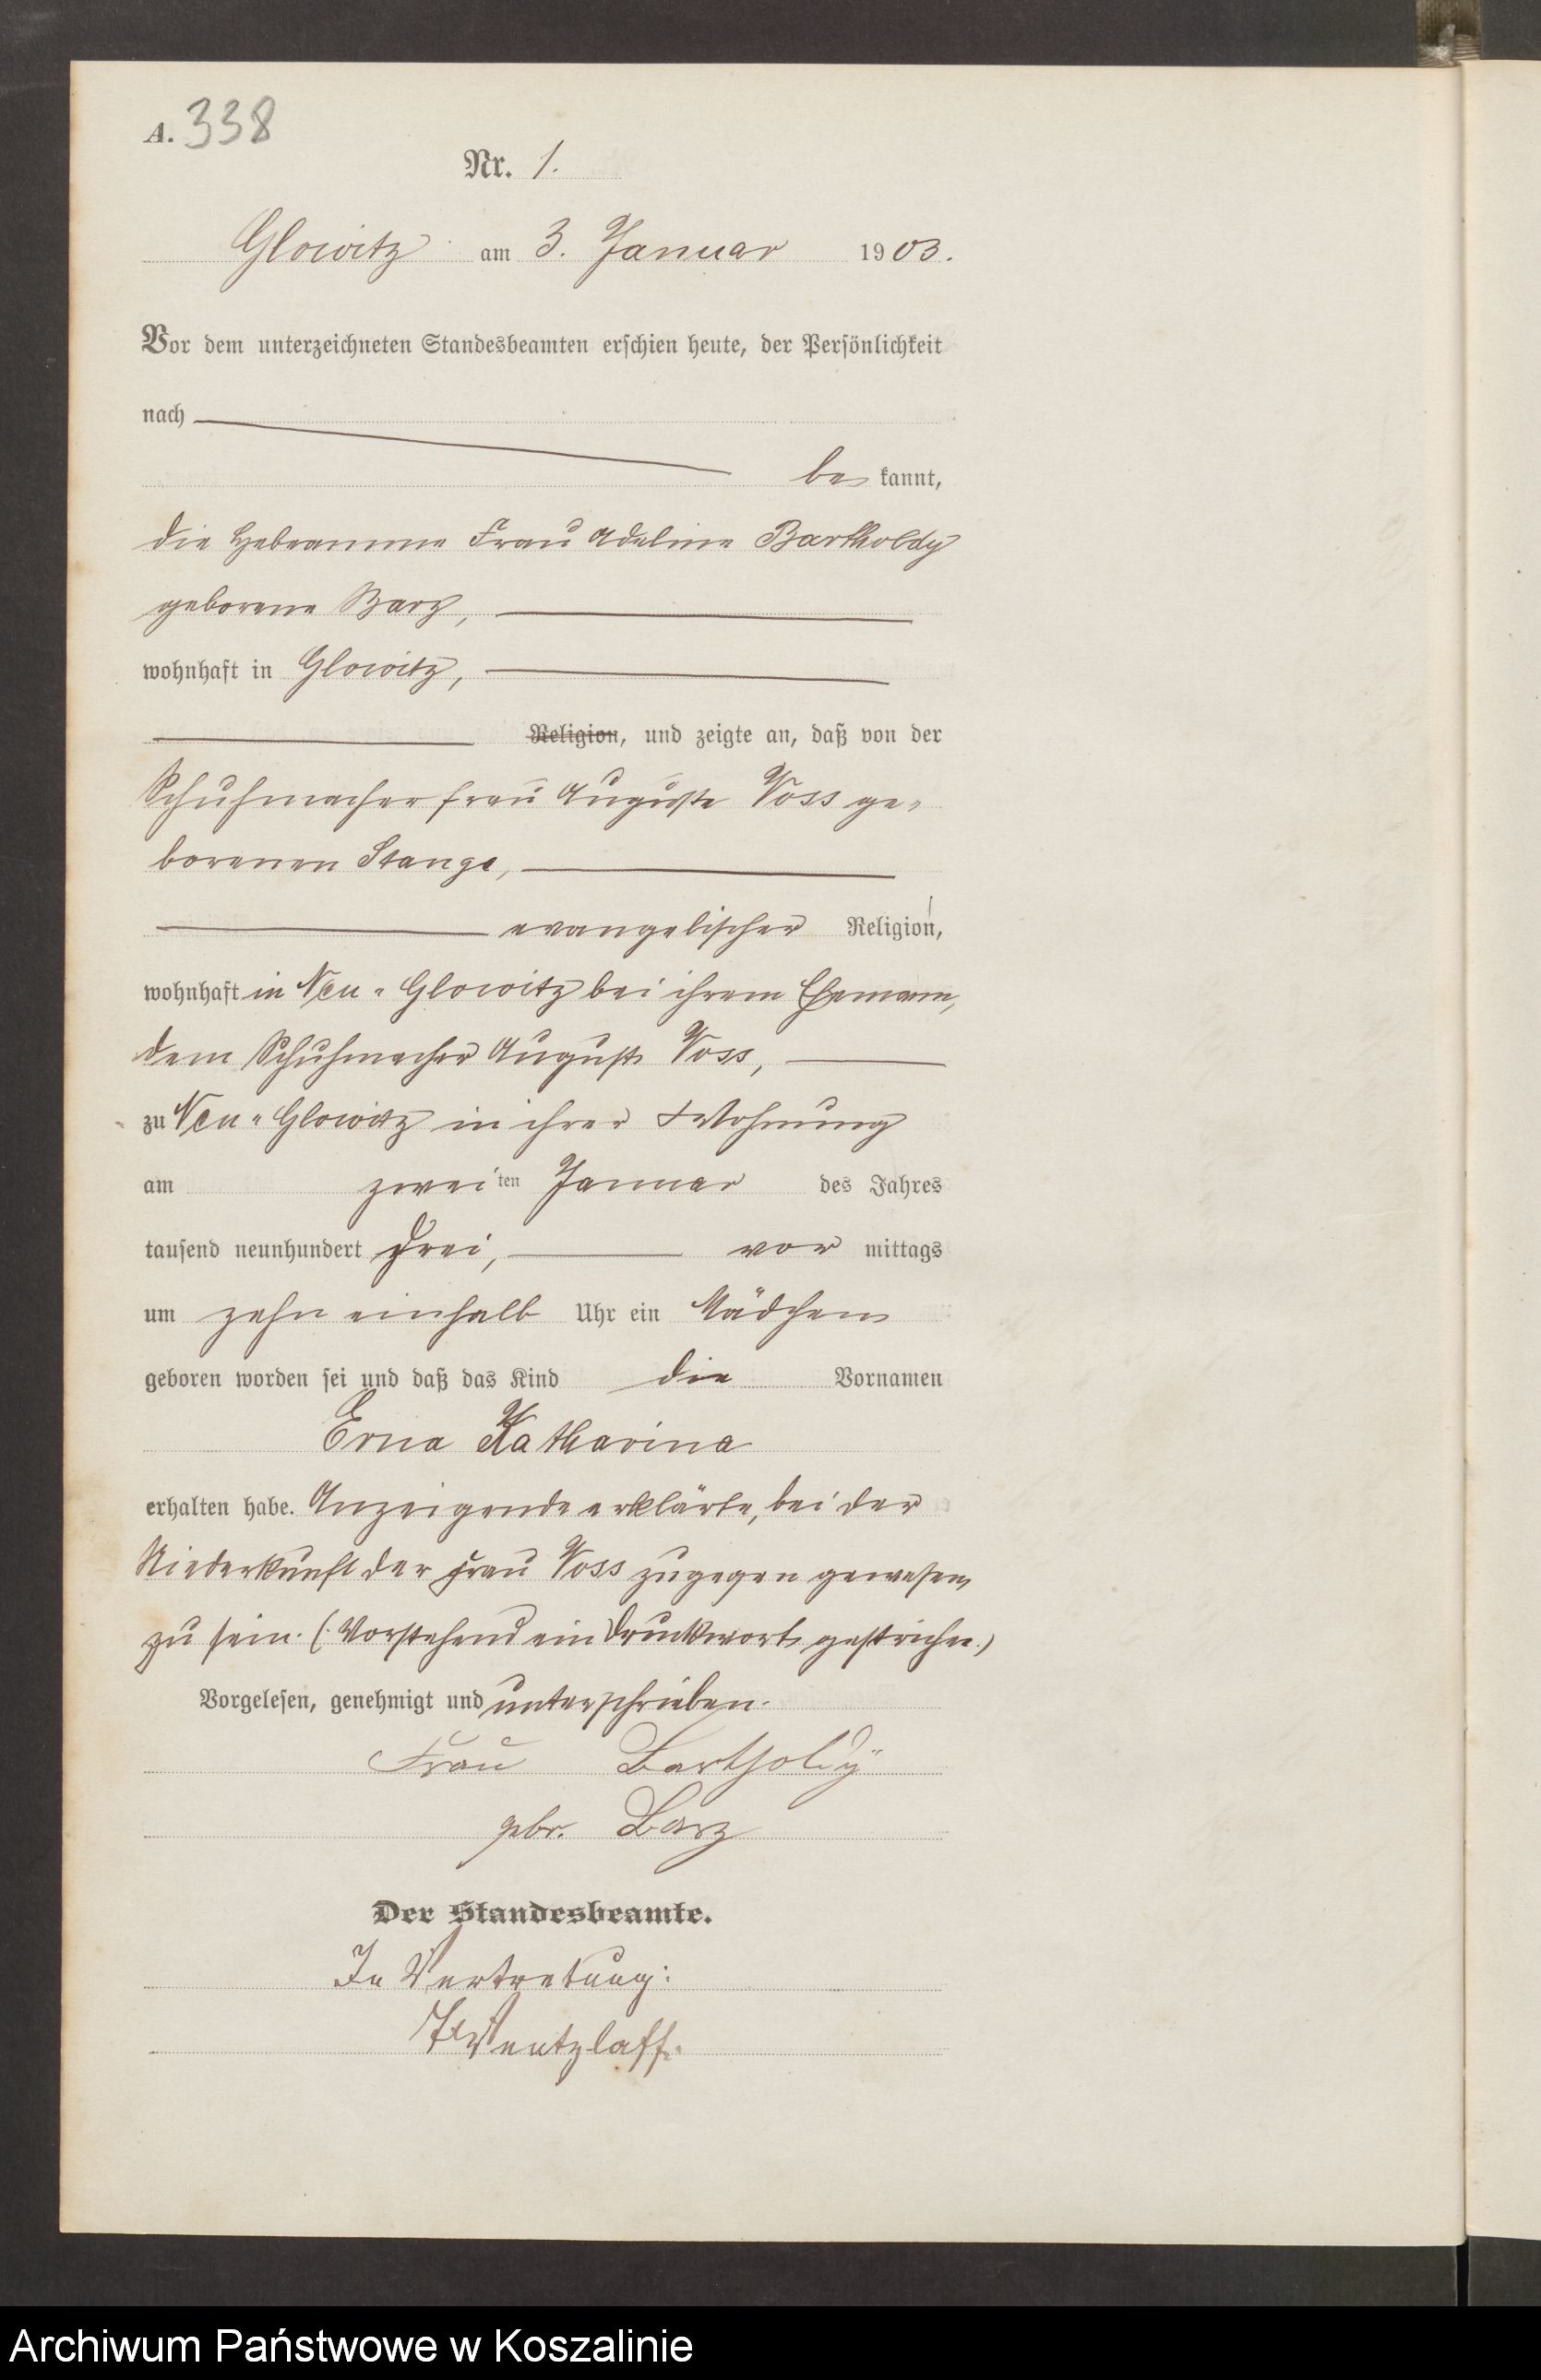 A. 338
Nr. 1.
Glowitz am 3. Januar 1903.
Vor dem unterzeichneten Standesbeamten erschien heute, der Persönlichkeit
nach
be kannt,
die Hebeamme Frau Adeline Bartholdy
geborene Barz,
wohnhaft in Glowitz,
Religion, und zeigte an, daß von der
Schuhmacherfrau Auguste Voss ge-
borenen Stange,
evangelischer Religion,
wohnhaft in Neu-Glowitz bei ihrem Ehemann,
dem Schuhmacher August Voss,
zu Neu-Glowitz in ihrer Wohnung
am zweiten Januar des Jahres
tausend neunhundert drei, vor mittags
um zehn einhalb Uhr ein Mädchen
geboren worden sei und daß das Kind die Vornamen
Erna Katharina
erhalten habe. Anzeigende erklärte, bei der
Niederkunft der Frau Voss zugegen gewesen
zu sein. (Vorstehend ein Druckwort gestrichen.)
Vorgelesen, genehmigt und unterschrieben.
Frau Bartholdÿ
gbr. Barz
Der Standesbeamte.
In Vertretung:
Wentzlaff.
Archiwum Państwowe w Koszalinie